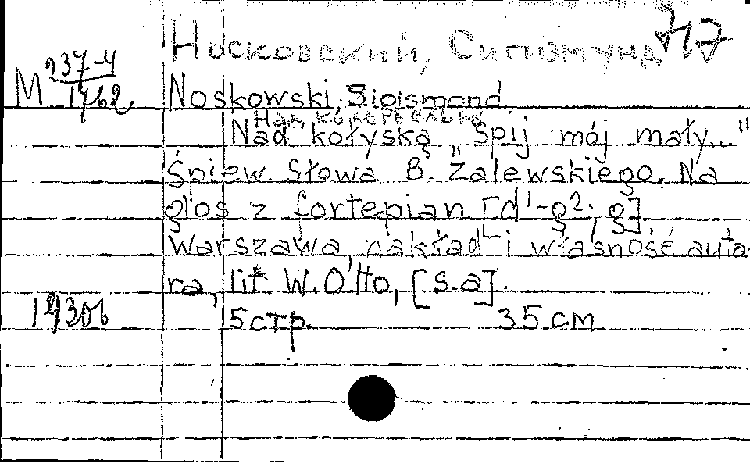 Носковский, Сигизмунд 717
М 237-4
1762
Noskowski, Sigismond
Над колыбелью
Nad kołyską "Śpij mój mały..."
Śpiew. Słowa B. Zalewskiego. Na
głos z fortepian [d¹-g²; g]
Warszawa, nakład i własność auto-
ra, lit. W. Otto, [s.a].
1930б
5 стр. 35 см